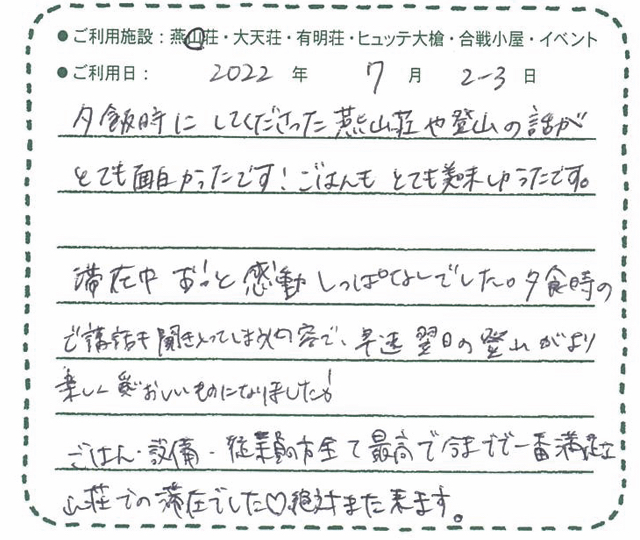 ●ご利用施設：燕山荘・大天荘・有明荘・ヒュッテ大槍・合戦小屋・イベント
●ご利用日： 2022 年 7 月 2-3 日
夕飯時にしてくださった燕山荘や登山の話が
とても面白かったです！ごはんもとても美味しかったです。
滞在中 ずっと感動しっぱなしでした。夕食時の
ご講話も聞き入ってしまう内容で、早速翌日の登山がより
楽しく愛おしいものになりました！
ごはん・設備・従業員の方全て最高で今までで一番満足な
山荘での滞在でした♡絶対また来ます。